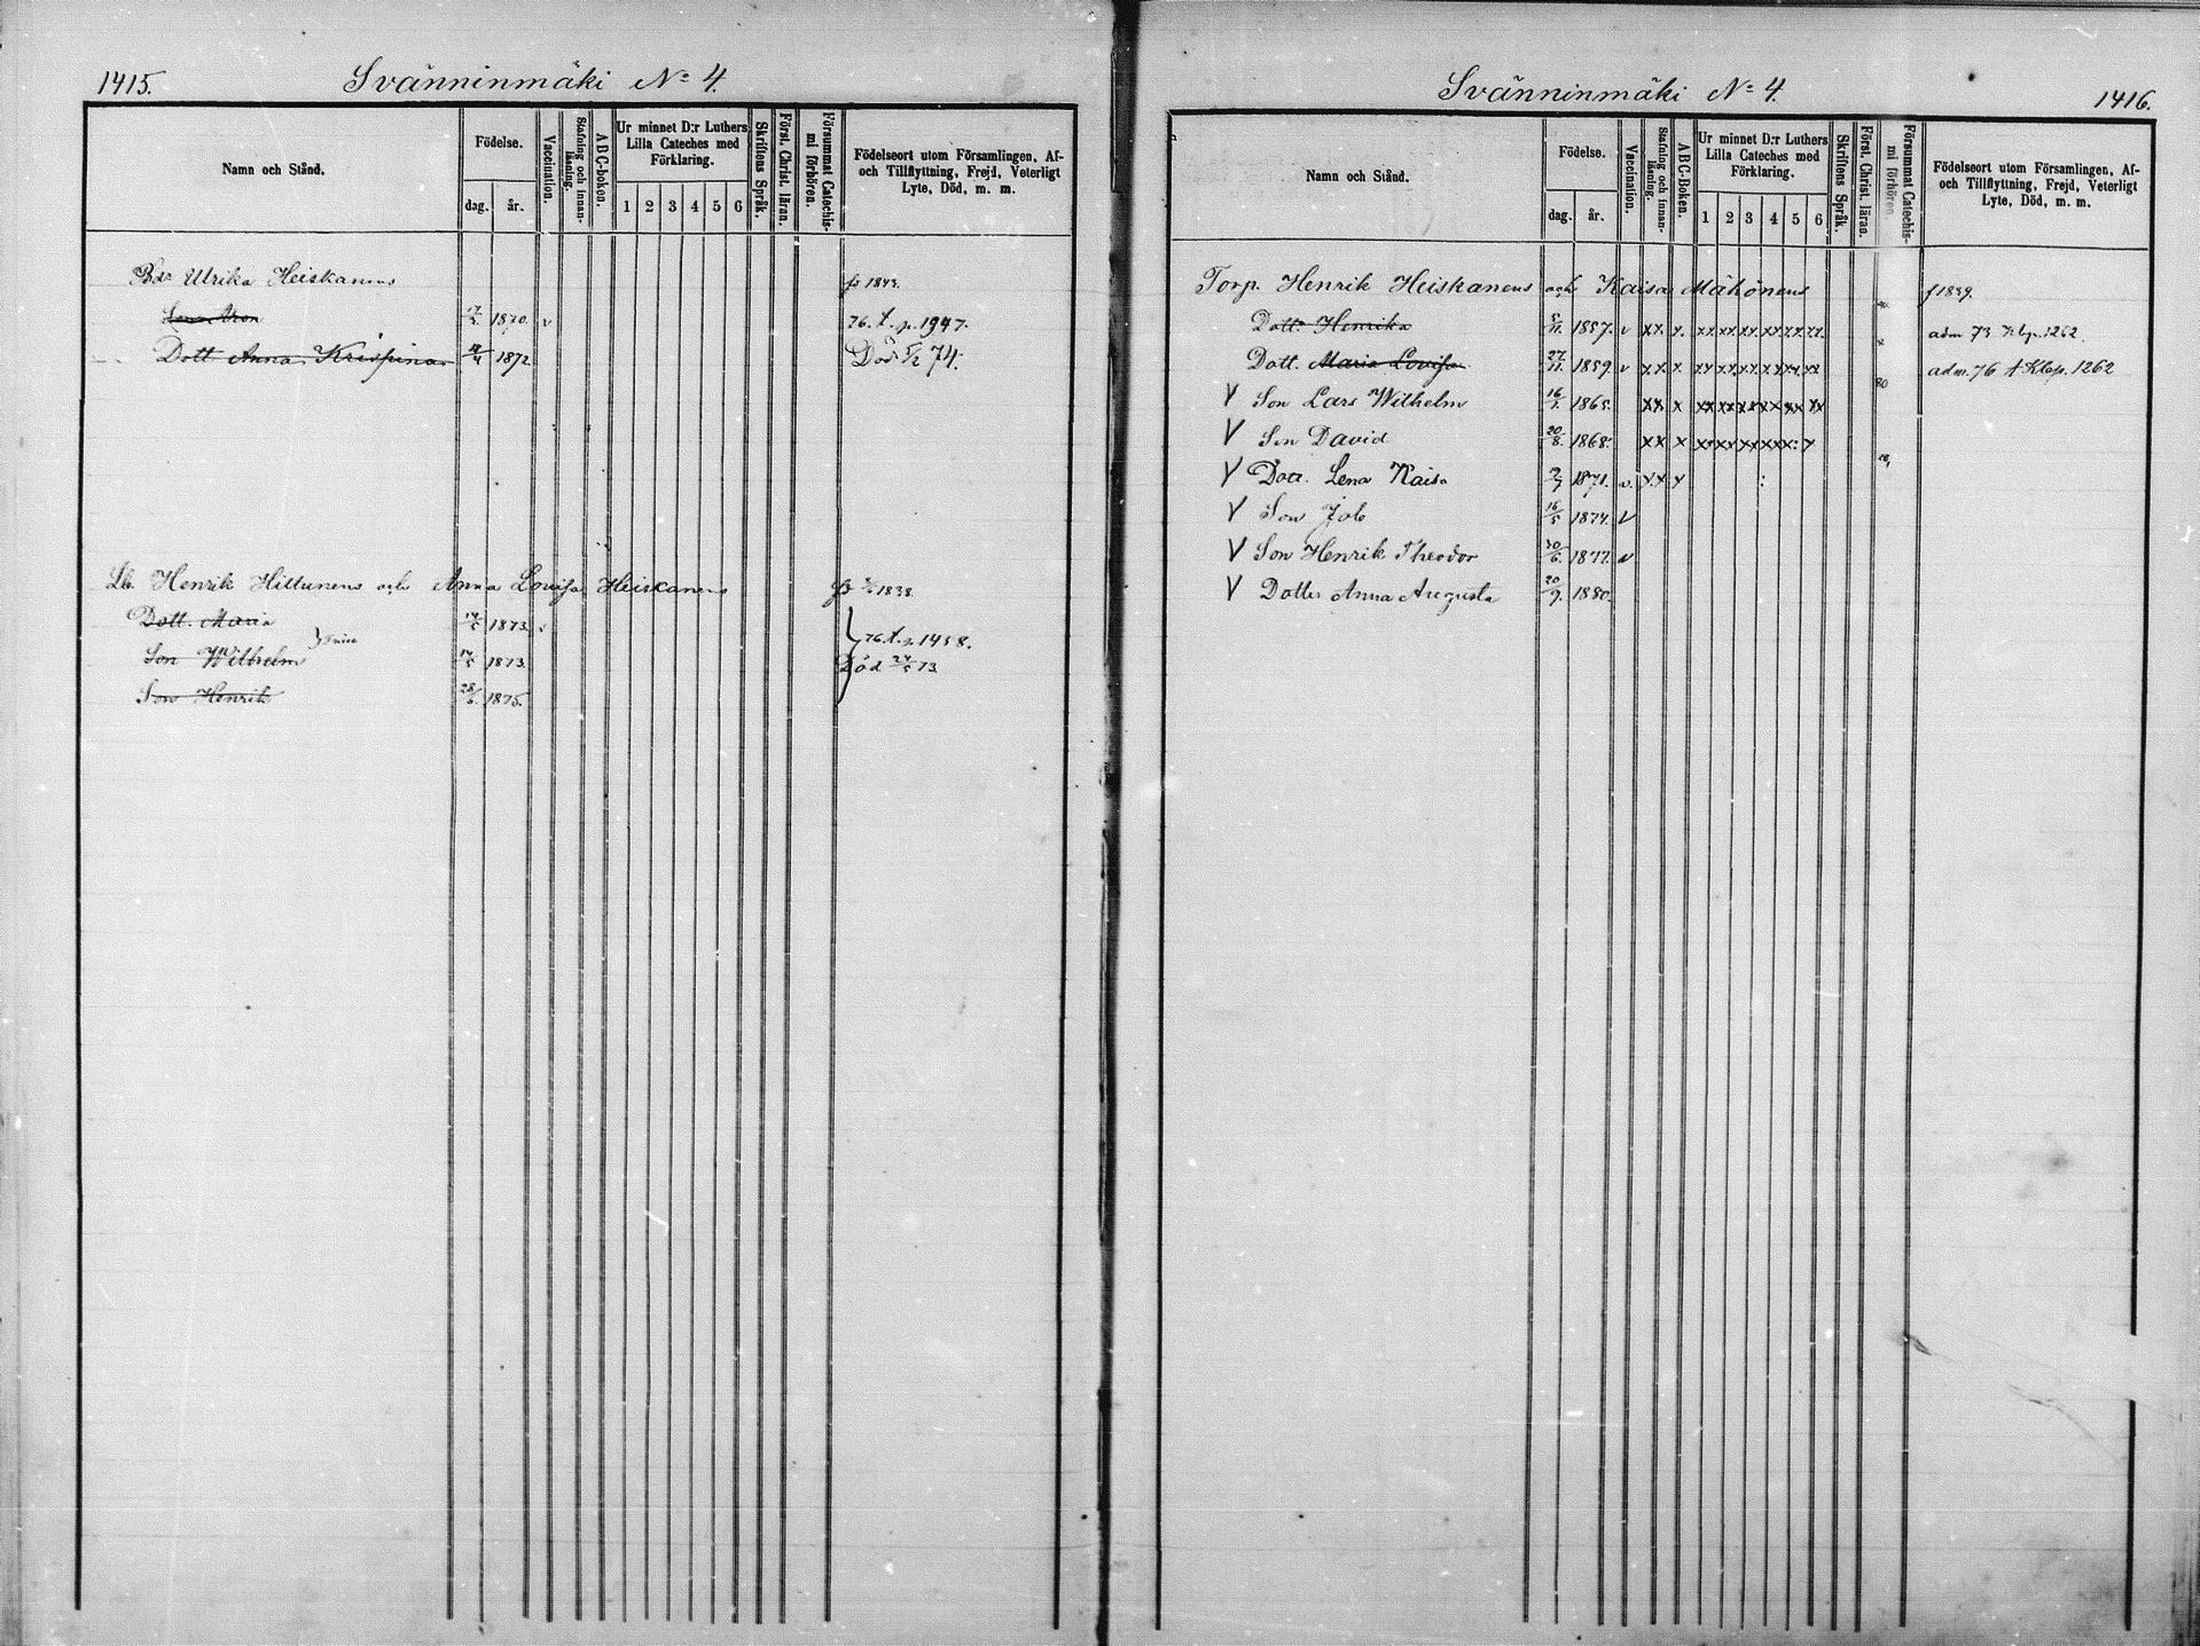 1415.
Svänninmäki No 4.
Namn och Stånd.
Födelse.
dag.
år.
Vaccination.
Stafning och innan-
läsning.
ABC-boken.
Ur minnet D:r Luthers
Lilla Cateches med
Förklaring.
1 2 3 4 5 6
Skriftens Språk.
Först. Christ. läran.
Försummat Catechis-
mi förhören.
Födelseort utom Församlingen, Af-
och Tillflyttning, Frejd, Veterligt
Lyte, Död, m. m.
Ulrika Heiskanens 1843.
1870. v 76. t. p. 1947.
Dott Anna Krispina 1872. Död 74.
Henrik Hiltunens och Anna Lovisa Heiskanens 1838
Dott. Maria 1873. 76. t. p. 1458.
Son Wilhelm 14/5 1873. Död 24/5 73
Son Henrik 1875.
Svänninmäki No 4.
1416.
Namn och Stånd.
Födelse.
dag.
år.
Vaccination.
Stafning och innan-
läsning.
ABC-Boken.
Ur minnet D:r Luthers
Lilla Cateches med
Förklaring.
1 2 3 4 5 6
Skriftens Språk.
Först. Christ. läran.
Försummat Catechis-
mi förhören.
Födelseort utom Församlingen, Af-
och Tillflyttning, Frejd, Veterligt
Lyte, Död, m. m.
Torp. Henrik Heiskanens och Kaisa Mähönens f 1839.
Dott. Henrika 5/11. 1857. v xx x. xx xx xx xx xx xx. adm 73 p. 1262.
Dott. Maria Lovisa 27/11. 1859. v xx x xx xx xx xx xx xx adm. 76 p. 1262
V Son Lars Wilhelm 16/1. 1865. xx x xx xx xx xx xx xx
V Son David 20/8. 1868. xx x xx xx xx xx x: x
V Dott. Lena Kaisa 1871. v. xx x
V Son Job 16/5 1874. V
V Son Henrik Theodor 30/6. 1877. v
V Dotter Anna Augusta 20/9. 1880.